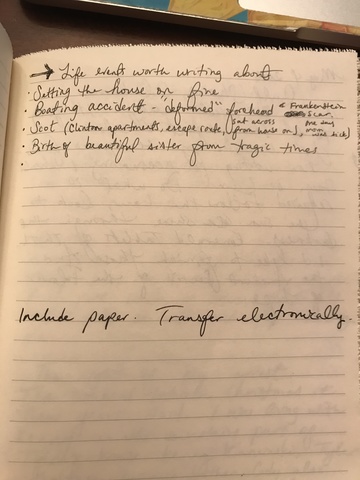 → Life event worth writing about
· Setting the house on fire
· Boating accident - "deformed" forehead < Frankenstein scar
· Scot (Clinton apartments, escape route, (sat across from house on), one day, mom was sick)
· Birth of beautiful sister from tragic times
·
Include paper. Transfer electronically.